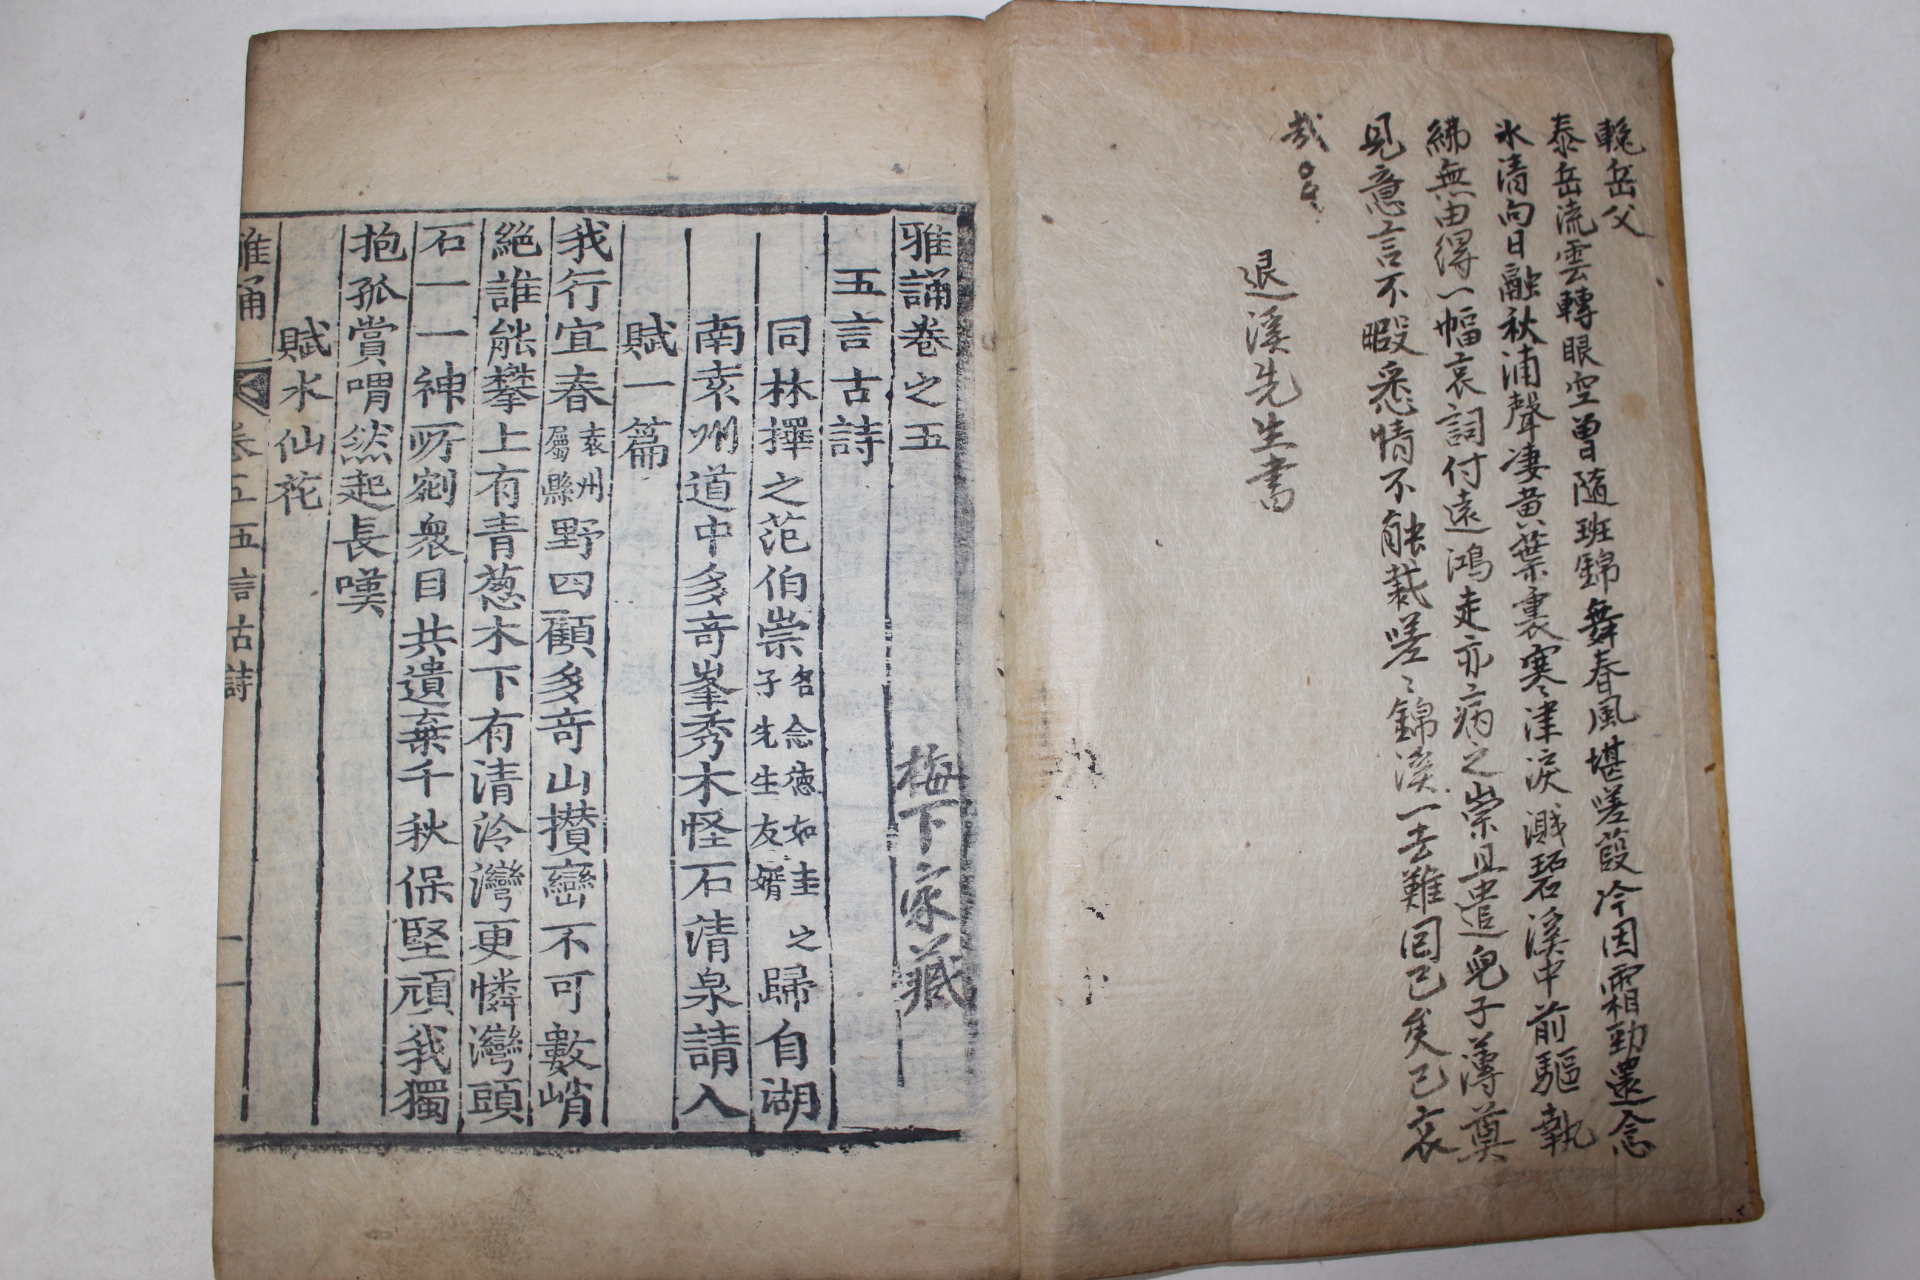 輓岳父
泰岳流雲轉眼空曾隨班錦舞春風堪嗟葭冷因霜勁還念
氷清向日融秋浦聲凄黃葉裏寒津淚濺碧溪中前驅執
紼無由得一幅哀詞付遠鴻走亦病之崇且遣兒子薄奠
見意言不暇悉情不能裁嗟〻錦溪一去難回已矣已哀
哉〻〻
退溪先生書
雅誦卷之五
梅下家藏
五言古詩
同林擇之范伯崇名念德如圭之子先生友婿歸自湖
南袁州道中多奇峯秀木怪石清泉請人
賦一篇
我行宜春袁州屬縣野四顧多奇山攅巒不可數峭
絕誰能攀上有青葱木下有清泠灣更憐灣頭
石一一神所剜衆目共遺棄千秋保堅頑我獨
抱孤賞喟然起長嘆
賦水仙花
雅誦 卷五五言古詩 一